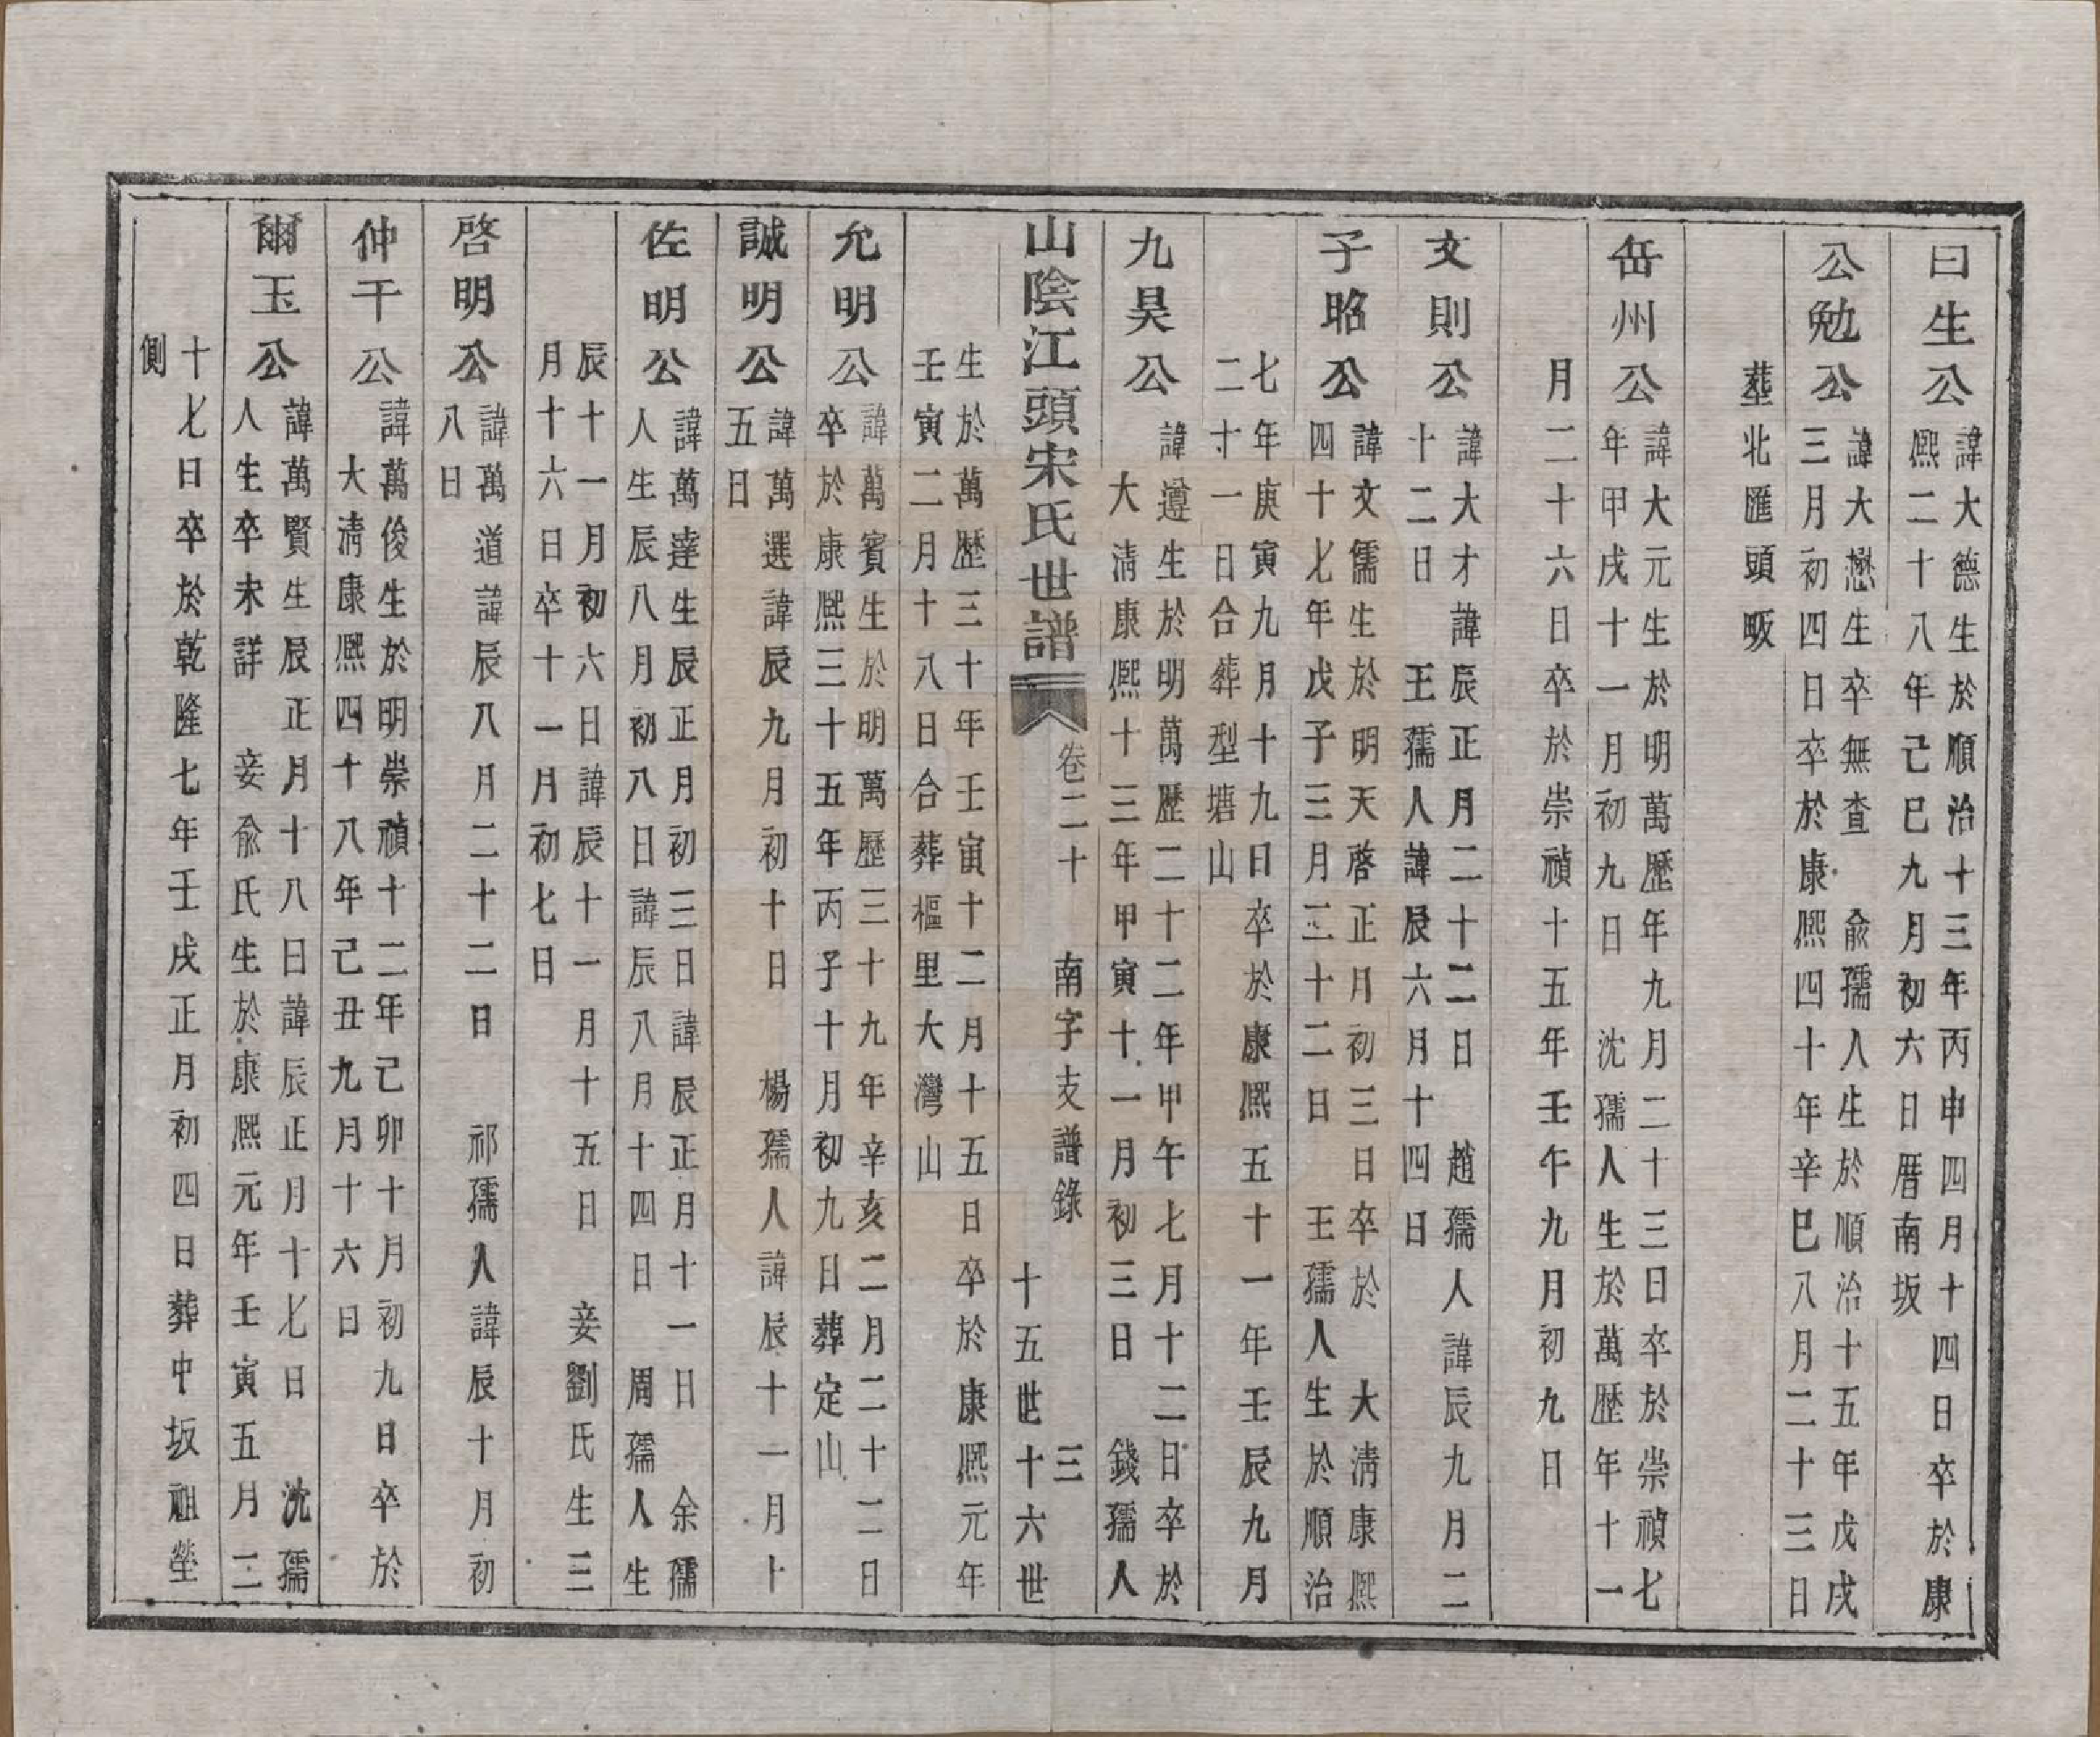 曰生公
諱大德生於順治十三年丙申四月十四日卒於康
熙二十八年己巳九月初六日厝南坂
公勉公
諱大懋生卒無查 兪孺人生於順治十五年戊戌
三月初四日卒於康熙四十年辛巳八月二十三日
塟北匯頭畈
岳州公
諱大元生於明萬歷年九月二十三日卒於崇禎七
年甲戌十一月初九日 沈孺人生於萬歷年十一
月二十六日卒於崇禎十五年壬午九月初九日
文則公
諱大才諱辰正月二十二日 趙孺人諱辰九月二
十二日 王孺人諱辰六月十四日
子昭公
諱文儒生於明天啓正月初三日卒於 大淸康熙
四十七年戊子三月三十二日 王孺人生於順治
七年庚寅九月十九日卒於康熙五十一年壬辰九月
二十一日合葬型塘山
九昊公
諱遵生於明萬歷二十二年甲午七月十二日卒於
大淸康熙十三年甲寅十一月初三日 錢孺人
山陰江頭宋氏世譜
卷二十 南字支譜錄 三
十五世十六世
生於萬歷三十年壬寅十二月十五日卒於康熙元年
壬寅二月十八日合葬樞里大灣山
允明公
諱萬賓生於明萬歷三十九年辛亥二月二十二日
卒於康熙三十五年丙子十月初九日葬定山
誠明公
諱萬選諱辰九月初十日 楊孺人諱辰十一月十
五日
佐明公
諱萬達生辰正月初三日諱辰正月十一日 余孺
人生辰八月初八日諱辰八月十四日 周孺人生
辰十一月初六日諱辰十一月十五日 妾劉氏生三
月十六日卒十一月初七日
啓明公
諱萬道諱辰八月二十二日 祁孺人諱辰十月初
八日
仲干公
諱萬俊生於明崇禎十二年己卯十月初九日卒於
大淸康熙四十八年己丑九月十六日
爾玉公
諱萬賢生辰正月十八日諱辰正月十七日 沈孺
人生卒未詳 妾兪氏生於康熙元年壬寅五月二
十七日卒於乾隆七年壬戌正月初四日葬中坂祖塋
側